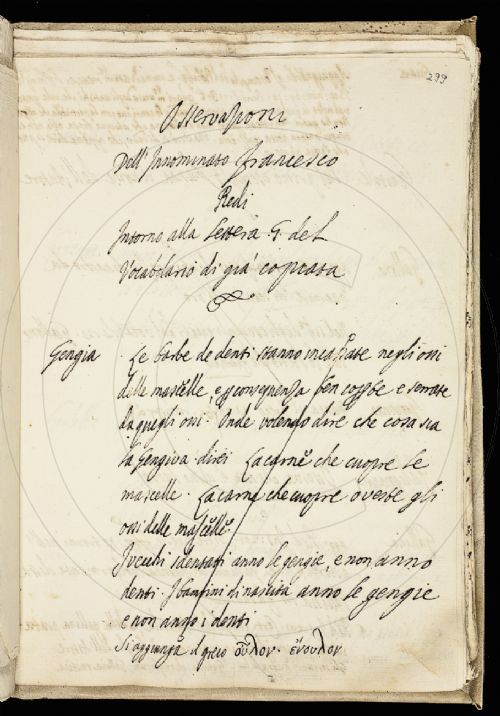 299
Osservazioni
Dell'Innominato Francesco
Redi
Intorno alla Lettera G. del
Vocabolario di già copiata
Gengia . Le barbe de denti stanno incassate negli ossi
delle mascelle, e p conseguenza ben coperte e serrate
da quegli ossi. Onde volendo dire che cosa sia
la Gengiva direi La carne che cuopre le
mascelle. La carne che cuopre o veste gli
ossi delle mascelle.
I vecchi sdentati anno le gengie, e non anno
denti. I bambini di nascita anno le gengie
e non anno i denti
Si aggiunga il greco οὖλον. ἔνουλον